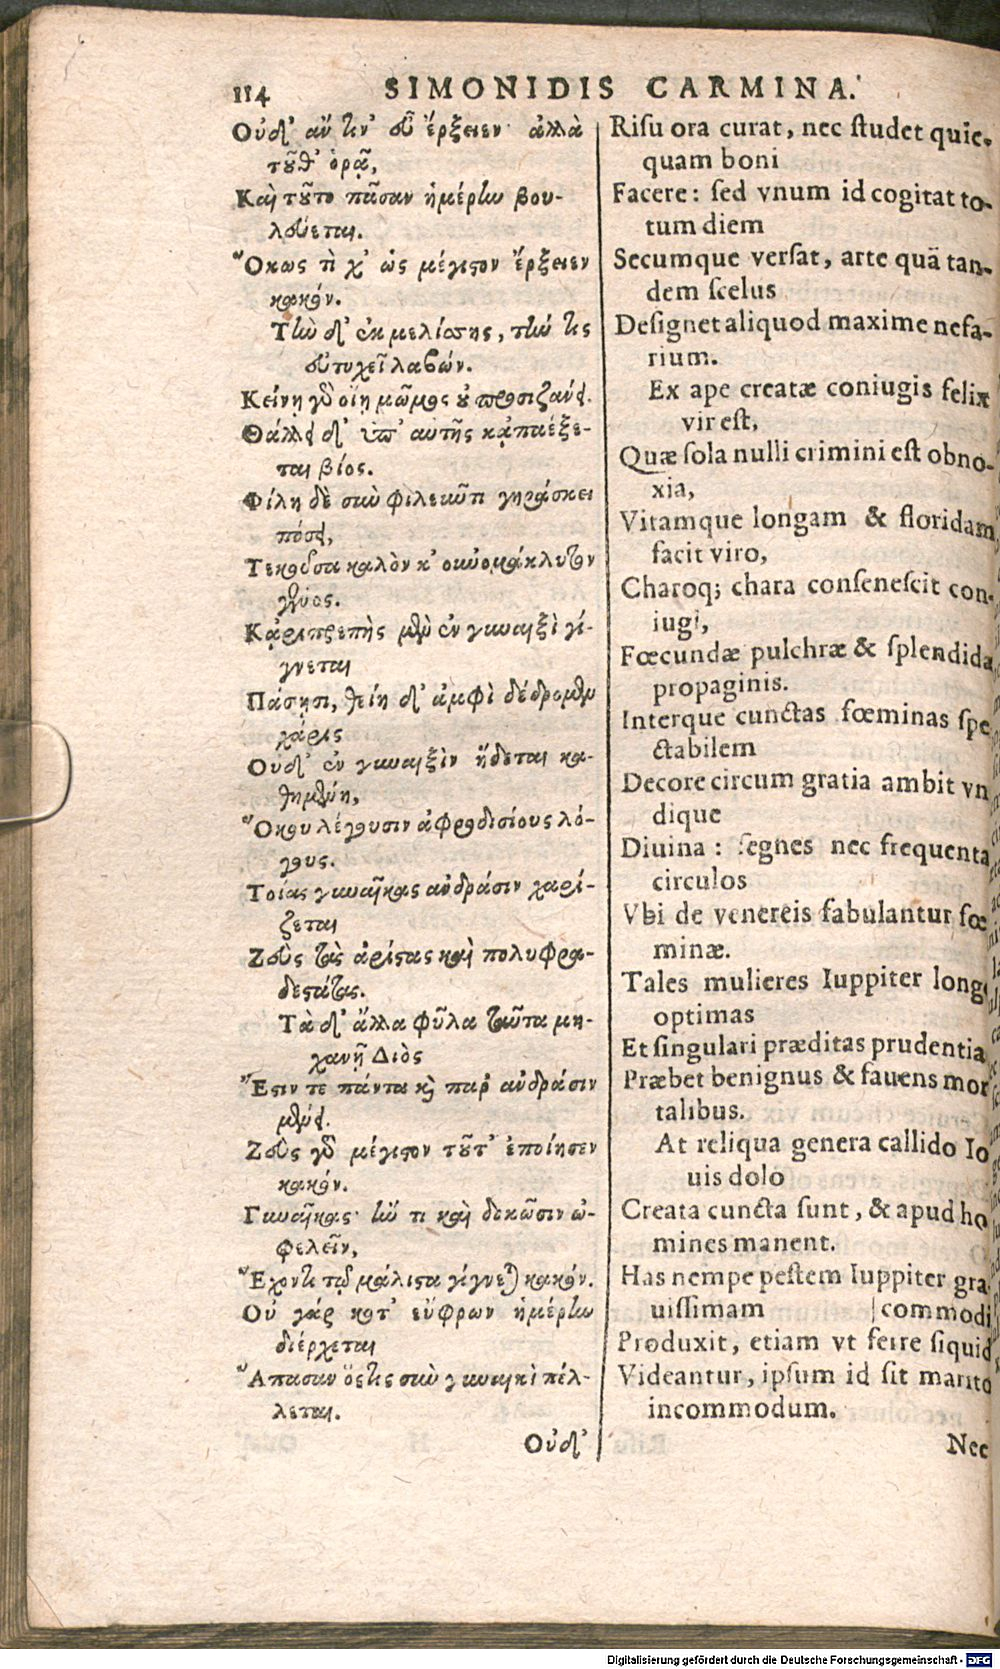 114 SIMONIDIS CARMINA.
Οὐδ' ἄν τιν' εὖ ἔρξειεν· ἀλλὰ
τοῦθ' ὁρᾷ,
Καὶ τοῦτο πᾶσαν ἡμέρην βου-
λεύεται.
Ὅκως τὶ χ' ὡς μέγιστον ἔρξειεν
κακόν.
Τὴν δ' ἐκ μελίσσης, τήν τις
εὐτυχεῖ λαβών.
Κείνῃ γὰρ οἴῃ μῶμος οὐ προσιζάνει.
Θάλλει δ' ὑπ' αὐτῆς κᾀπαέξε-
ται βίος.
Φίλη δὲ σὺν φιλεῦντι γηράσκει
πόσει,
Τεκοῦσα καλὸν κ' οὐνομάκλυτον
γένος.
Κᾀριπρεπὴς μὲν ἐν γυναιξὶ γί-
γνεται
Πάσῃσι, θείη δ' ἀμφὶ δέδρομεν
χάρις
Οὐδ' ἐν γυναιξὶν ἥδεται κα-
θημένη,
Ὅκου λέγουσιν ἀφροδισίους λό-
γους.
Τοίας γυναῖκας ἀνδράσιν χαρί-
ζεται
Ζεὺς τὰς ἀρίστας καὶ πολυφρα-
δεστάτας.
Τὰ δ' ἄλλα φῦλα ταῦτα μη-
χανῇ Διὸς
Ἔστιν τε πάντα καὶ παρ' ἀνδράσιν
μένει.
Ζεὺς γὰρ μέγιστον τοῦτ' ἐποίησεν
κακόν.
Γυναῖκας· ἤν τι καὶ δοκῶσιν ὠ-
φελεῖν,
Ἔχοντι τῷ μάλιστα γίγνεται κακόν.
Οὐ γάρ κοτ' εὔφρων ἡμέρην
διέρχεται
Ἅπασαν ὅστις σὺν γυναικὶ πέλ-
λεται.
Οὐδ'
Risu ora curat, nec studet quic-
quam boni
Facere: sed vnum id cogitat to-
tum diem
Secumque versat, arte quā tan-
dem scelus
Designet aliquod maxime nefa-
rium.
Ex ape creatæ coniugis felix
vir est,
Quæ sola nulli crimini est obno-
xia,
Vitamque longam & floridam
facit viro,
Charoq; chara consenescit con-
iugi,
Fœcundæ pulchræ & splendida
propaginis.
Interque cunctas fœminas spe
ctabilem
Decore circum gratia ambit vn
dique
Diuina: segnes nec frequenta
circulos
Vbi de venereis fabulantur fœ
minæ.
Tales mulieres Iuppiter long
optimas
Et singulari præditas prudentia
Præbet benignus & fauens mor
talibus.
At reliqua genera callido Io
uis dolo
Creata cuncta sunt, & apud ho
mines manent.
Has nempe pestem Iuppiter gra
uissimam |commodi
Produxit, etiam vt ferre siquid
Videantur, ipsum id sit marito
incommodum.
Nec
Digitalisierung gefördert durch die Deutsche Forschungsgemeinschaft - DFG